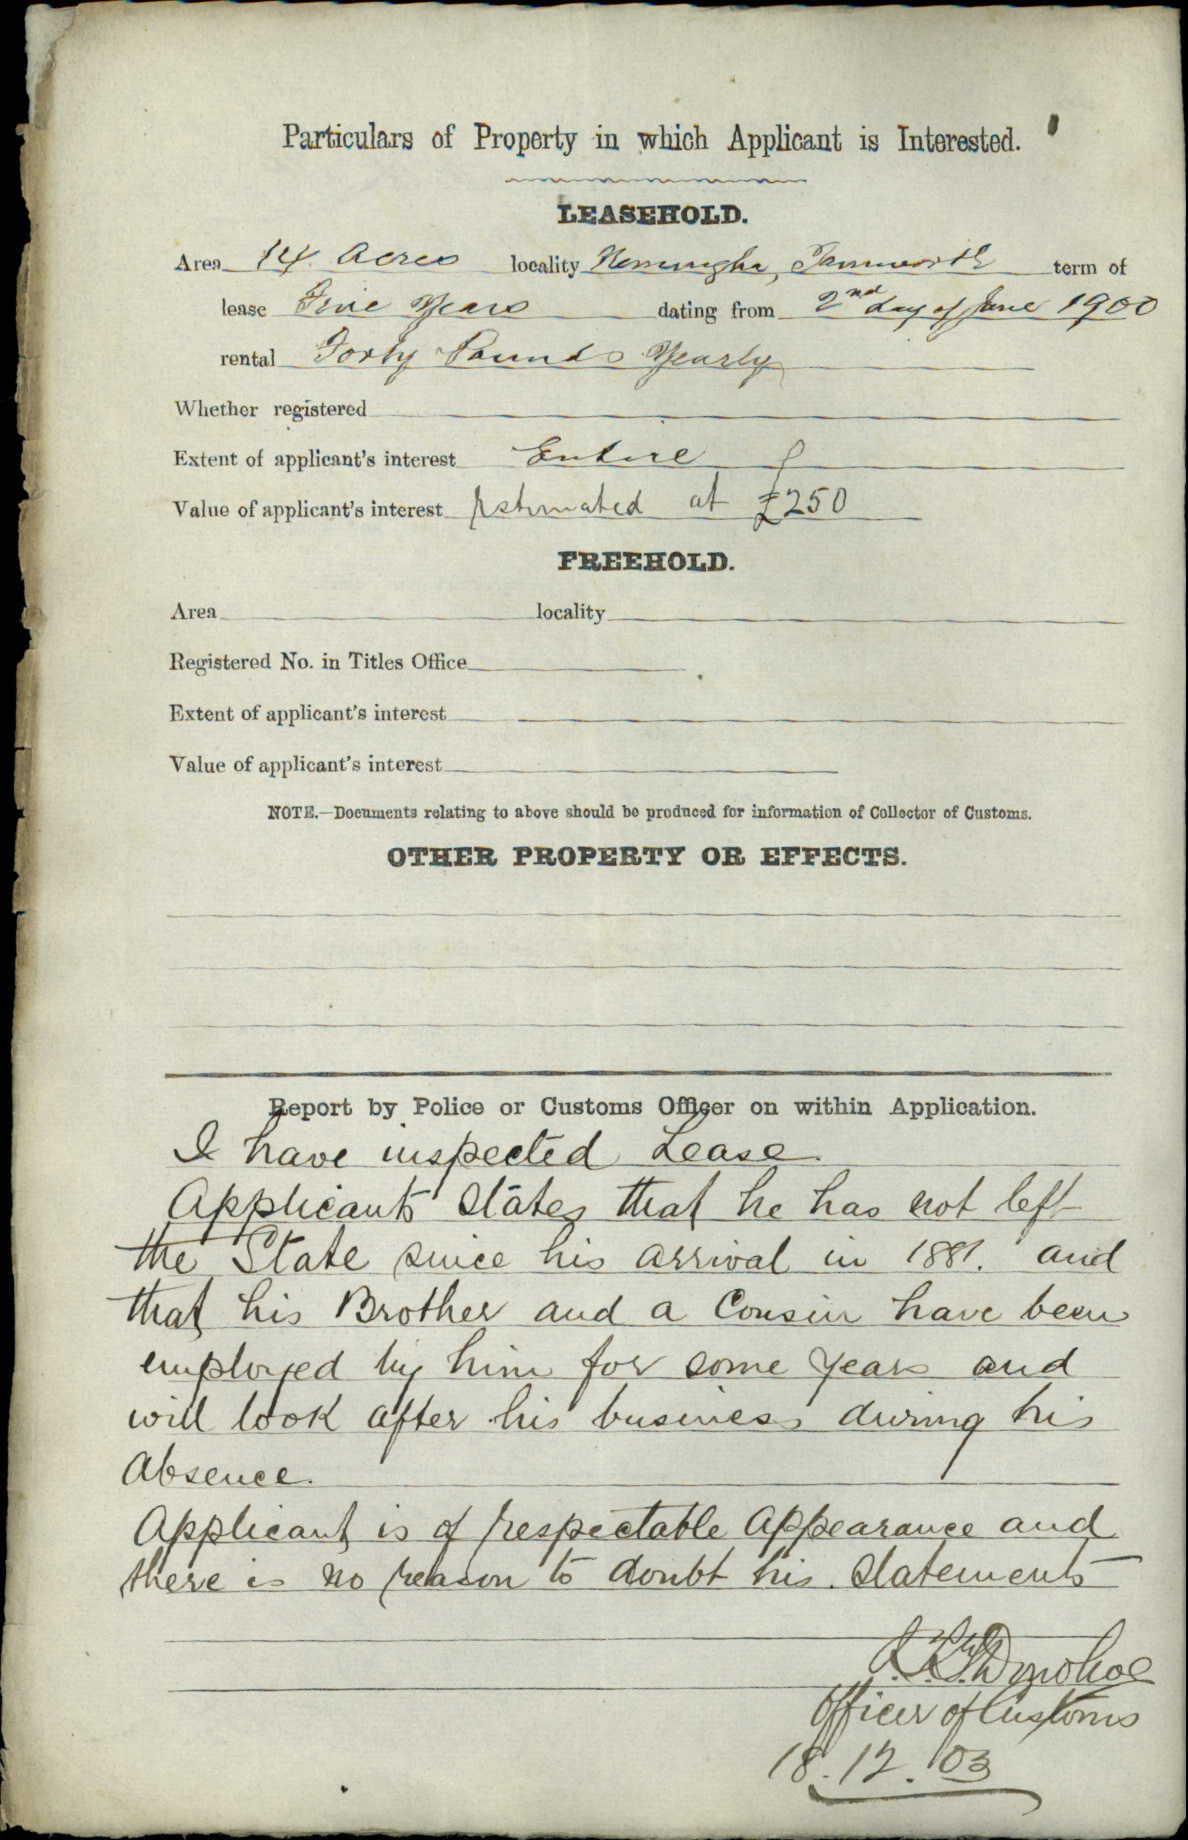 Particulars of Property in which Applicant is Interested.
LEASEHOLD.
Area 14 Acres locality Nemingha, Tamworth term of
lease Five Years dating from 2nd day of June 1900
rental Forty Pounds Yearly
Whether registered
Extent of applicant's interest Entire
Value of applicant's interest Estimated at £250
FREEHOLD.
Area locality
Registered No. in Titles Office
Extent of applicant's interest
Value of applicant's interest
NOTE.—Documents relating to above should be produced for information of Collector of Customs.
OTHER PROPERTY OR EFFECTS.
Report by Police or Customs Officer on within Application.
I have inspected Lease.
Applicant states that he has not left
the State since his arrival in 1881. and
that his Brother and a Cousin have been
employed by him for some years and
will look after his business during his
absence.
Applicant is of respectable appearance and
there is no reason to doubt his statements
Donohoe
Officer of Customs
18.12.03